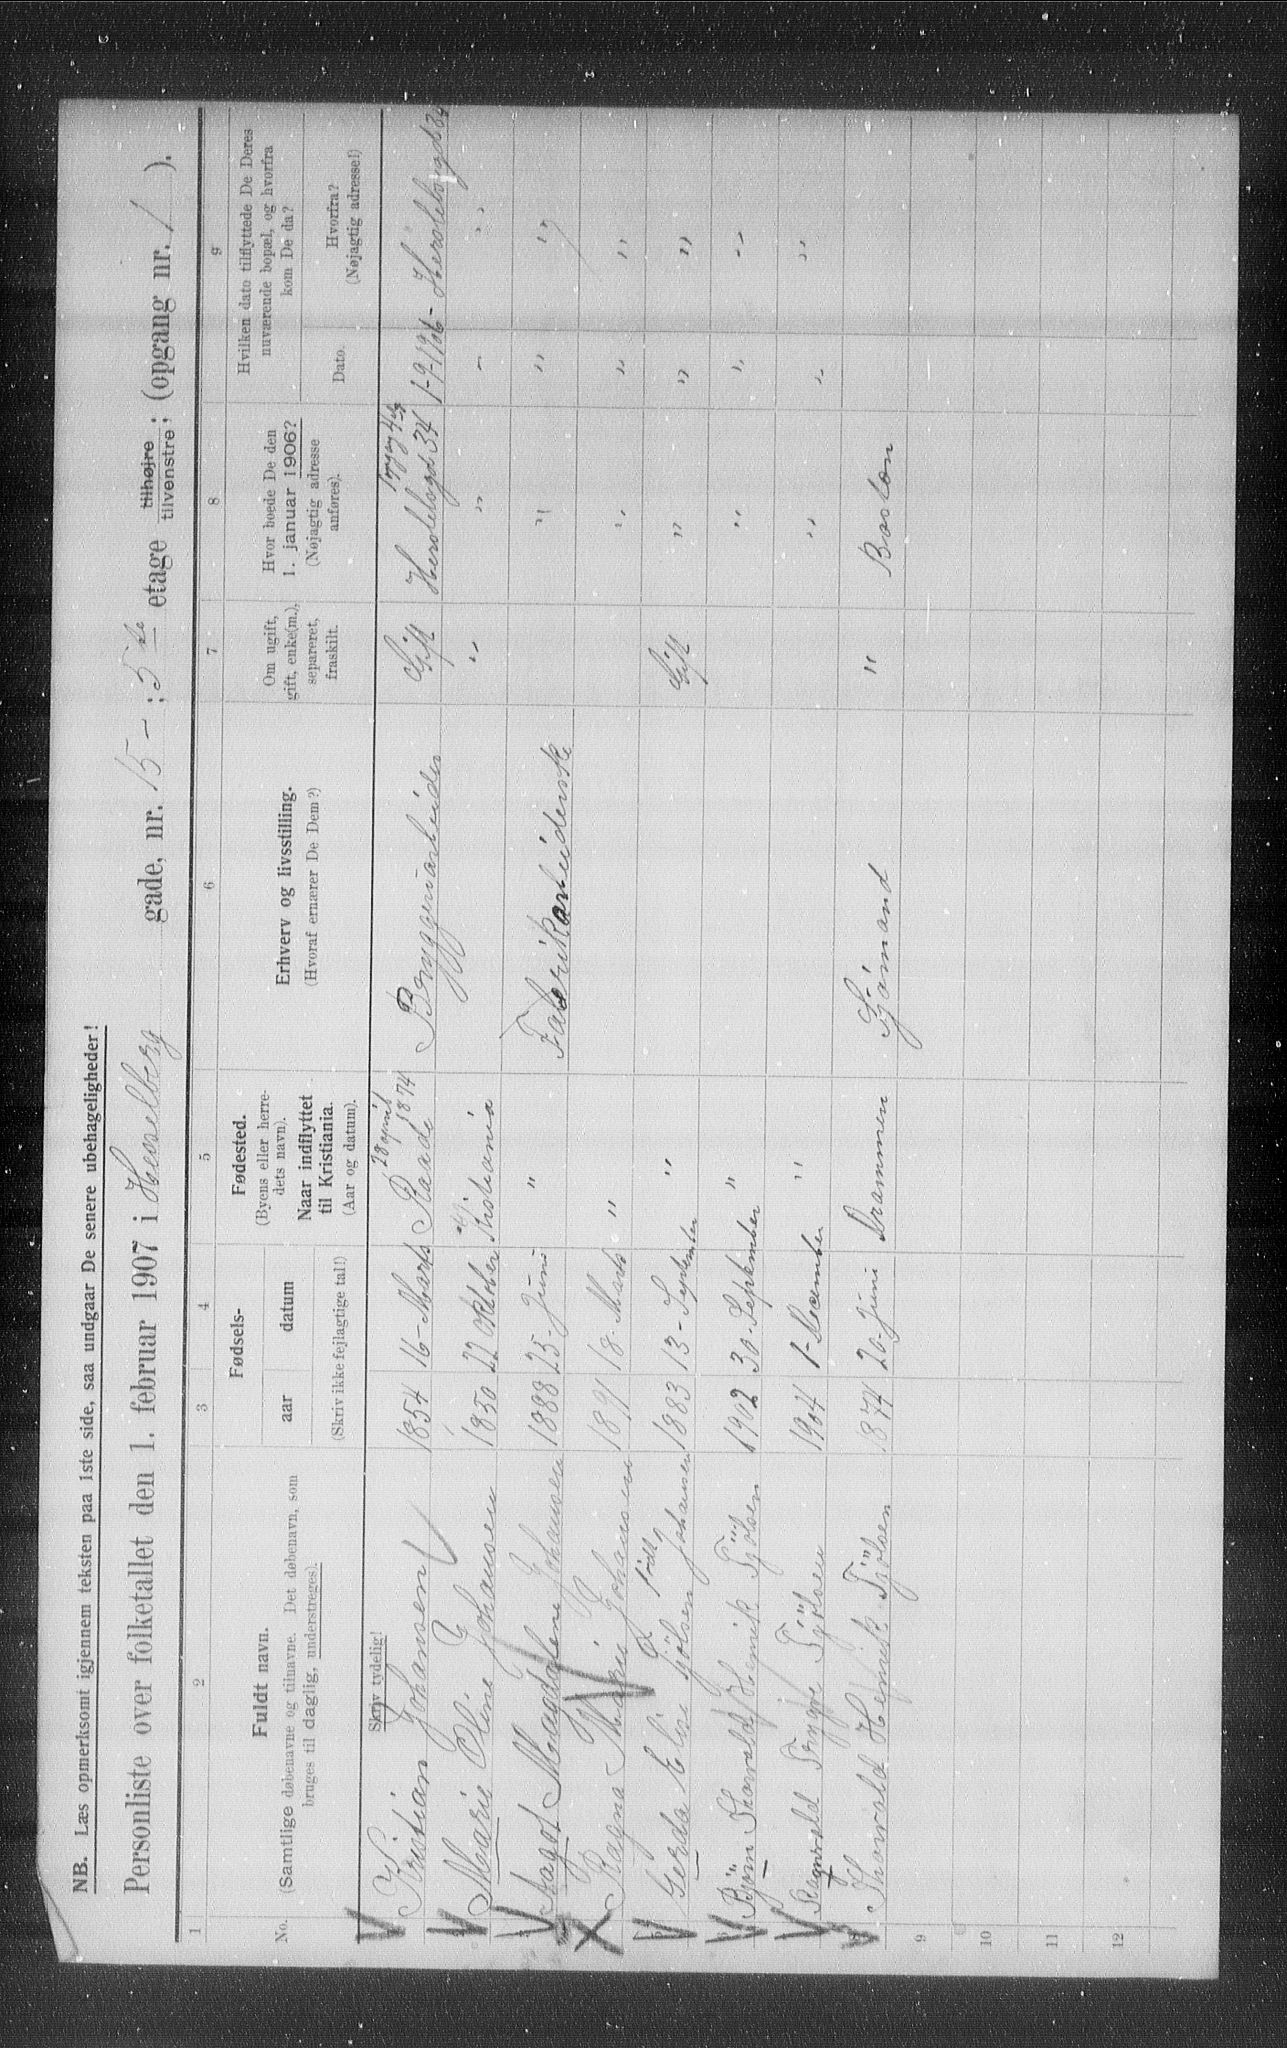 NB. Læs opmerksomt igjennem teksten paa 1ste side, saa undgaar De senere ubehageligheder!
Personliste over folketallet den 1. februar 1907 i Hesselberg gade, nr. 15 - ; 5 te etage tilhøjre tilvenstre ; (opgang nr. 1 ).
1 2 3 4 5 6 7 8 9
No.
Fuldt navn.
(Samtlige døbenavne og tilnavne. Det døbenavn, som
bruges til daglig, understreges).
Fødsels-
aar datum
(Skriv ikke fejlagtige tal!)
Fødested.
(Byens eller herre-
dets navn).
Naar indflyttet
til Kristiania.
(Aar og datum).
Erhverv og livsstilling.
(Hvoraf ernærer De Dem?)
Om ugift,
gift, enke(m.),
separeret,
fraskilt.
Hvor boede De den
1. januar 1906?
(Nøjagtig adresse
anføres).
Hvilken dato tilflyttede De Deres
nuværende bopæl, og hvorfra
kom De da?
Dato.
Hvorfra?
(Nøjagtig adresse!)
Skriv tydelig!
28 april
Kristian Johansen 1854 16 - Marts Raade 1874 Bryggeriarbeider Gift Herslebsgd 34 1-9-1906 - Herslebsgd 34
Marie Oline Johansen 1850 22 Oktober Kristiania " " - "
Aagot Magdalene Johansen 1888 25 - Juni " Fabrikarbeiderske " " "
Ragna Marie Johansen 1891 18 - Marts " " " "
født
Gerda Elise Tjölsen Johansen 1883 13 - September " Gift " " "
Bjørn Thorvald Henrik Tjölsen 1902 30 - September " " " "
Ragnvald Trygve Tjölsen 1904 1 - December " " " "
8 Thorvald Henrik Tjölsen 1874 20 - Juni Drammen Sjömand " Boston
9
10
11
12